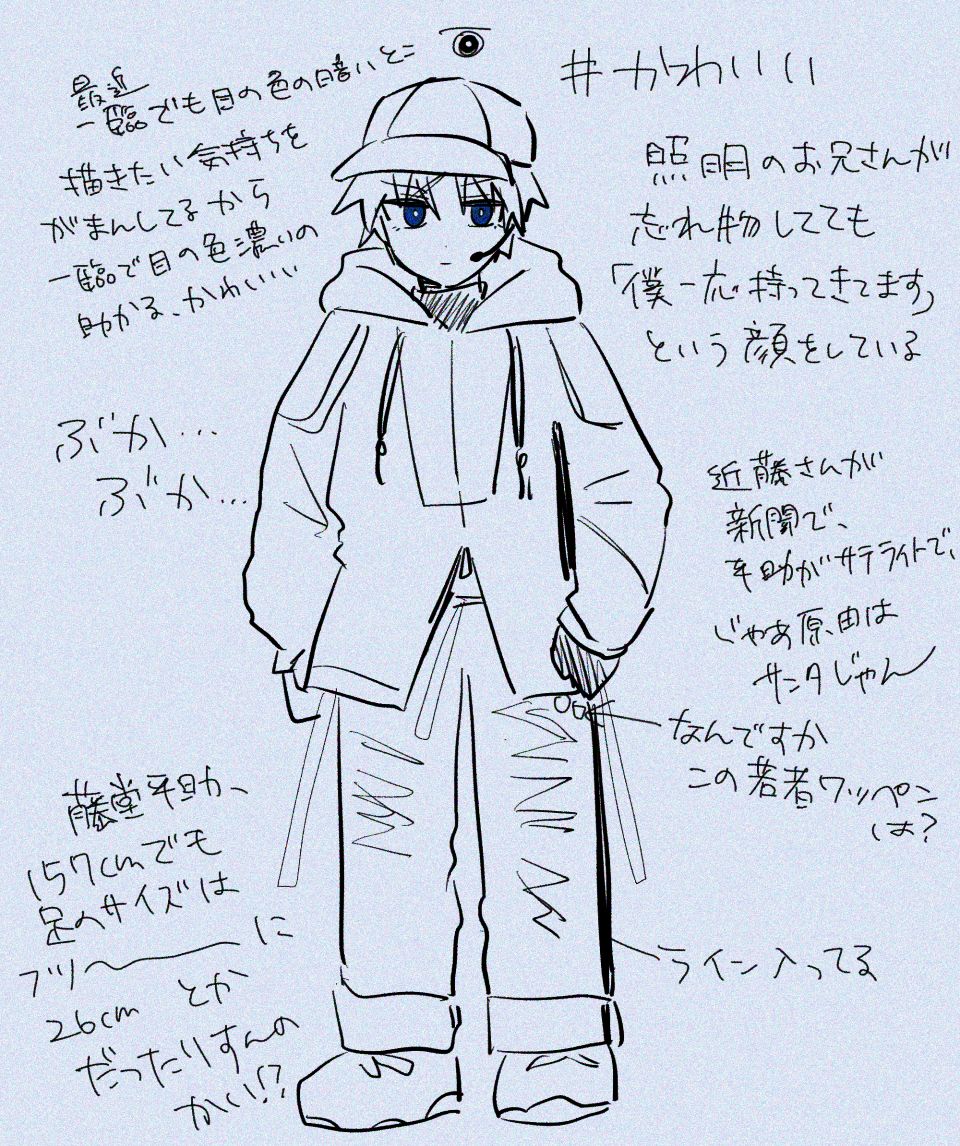 最近
一臨でも目の色の暗いとこ
描きたい気持ちを
がまんしてるから
一臨で目の色濃いの
助かる、かわいい
#かわいい
照明のお兄さんが
忘れ物してても
「僕一応持ってきてます」
という顔をしている
ぶか…
ぶか…
近藤さんが
新聞で、
平助がサテライトで、
じゃあ原田は
サンタじゃん
なんですか
この若者ワッペン
は?
藤堂平助、
157cmでも
足のサイズは
フツ〜に
26cmとか
だったりすんの
かい!?
ライン入ってる